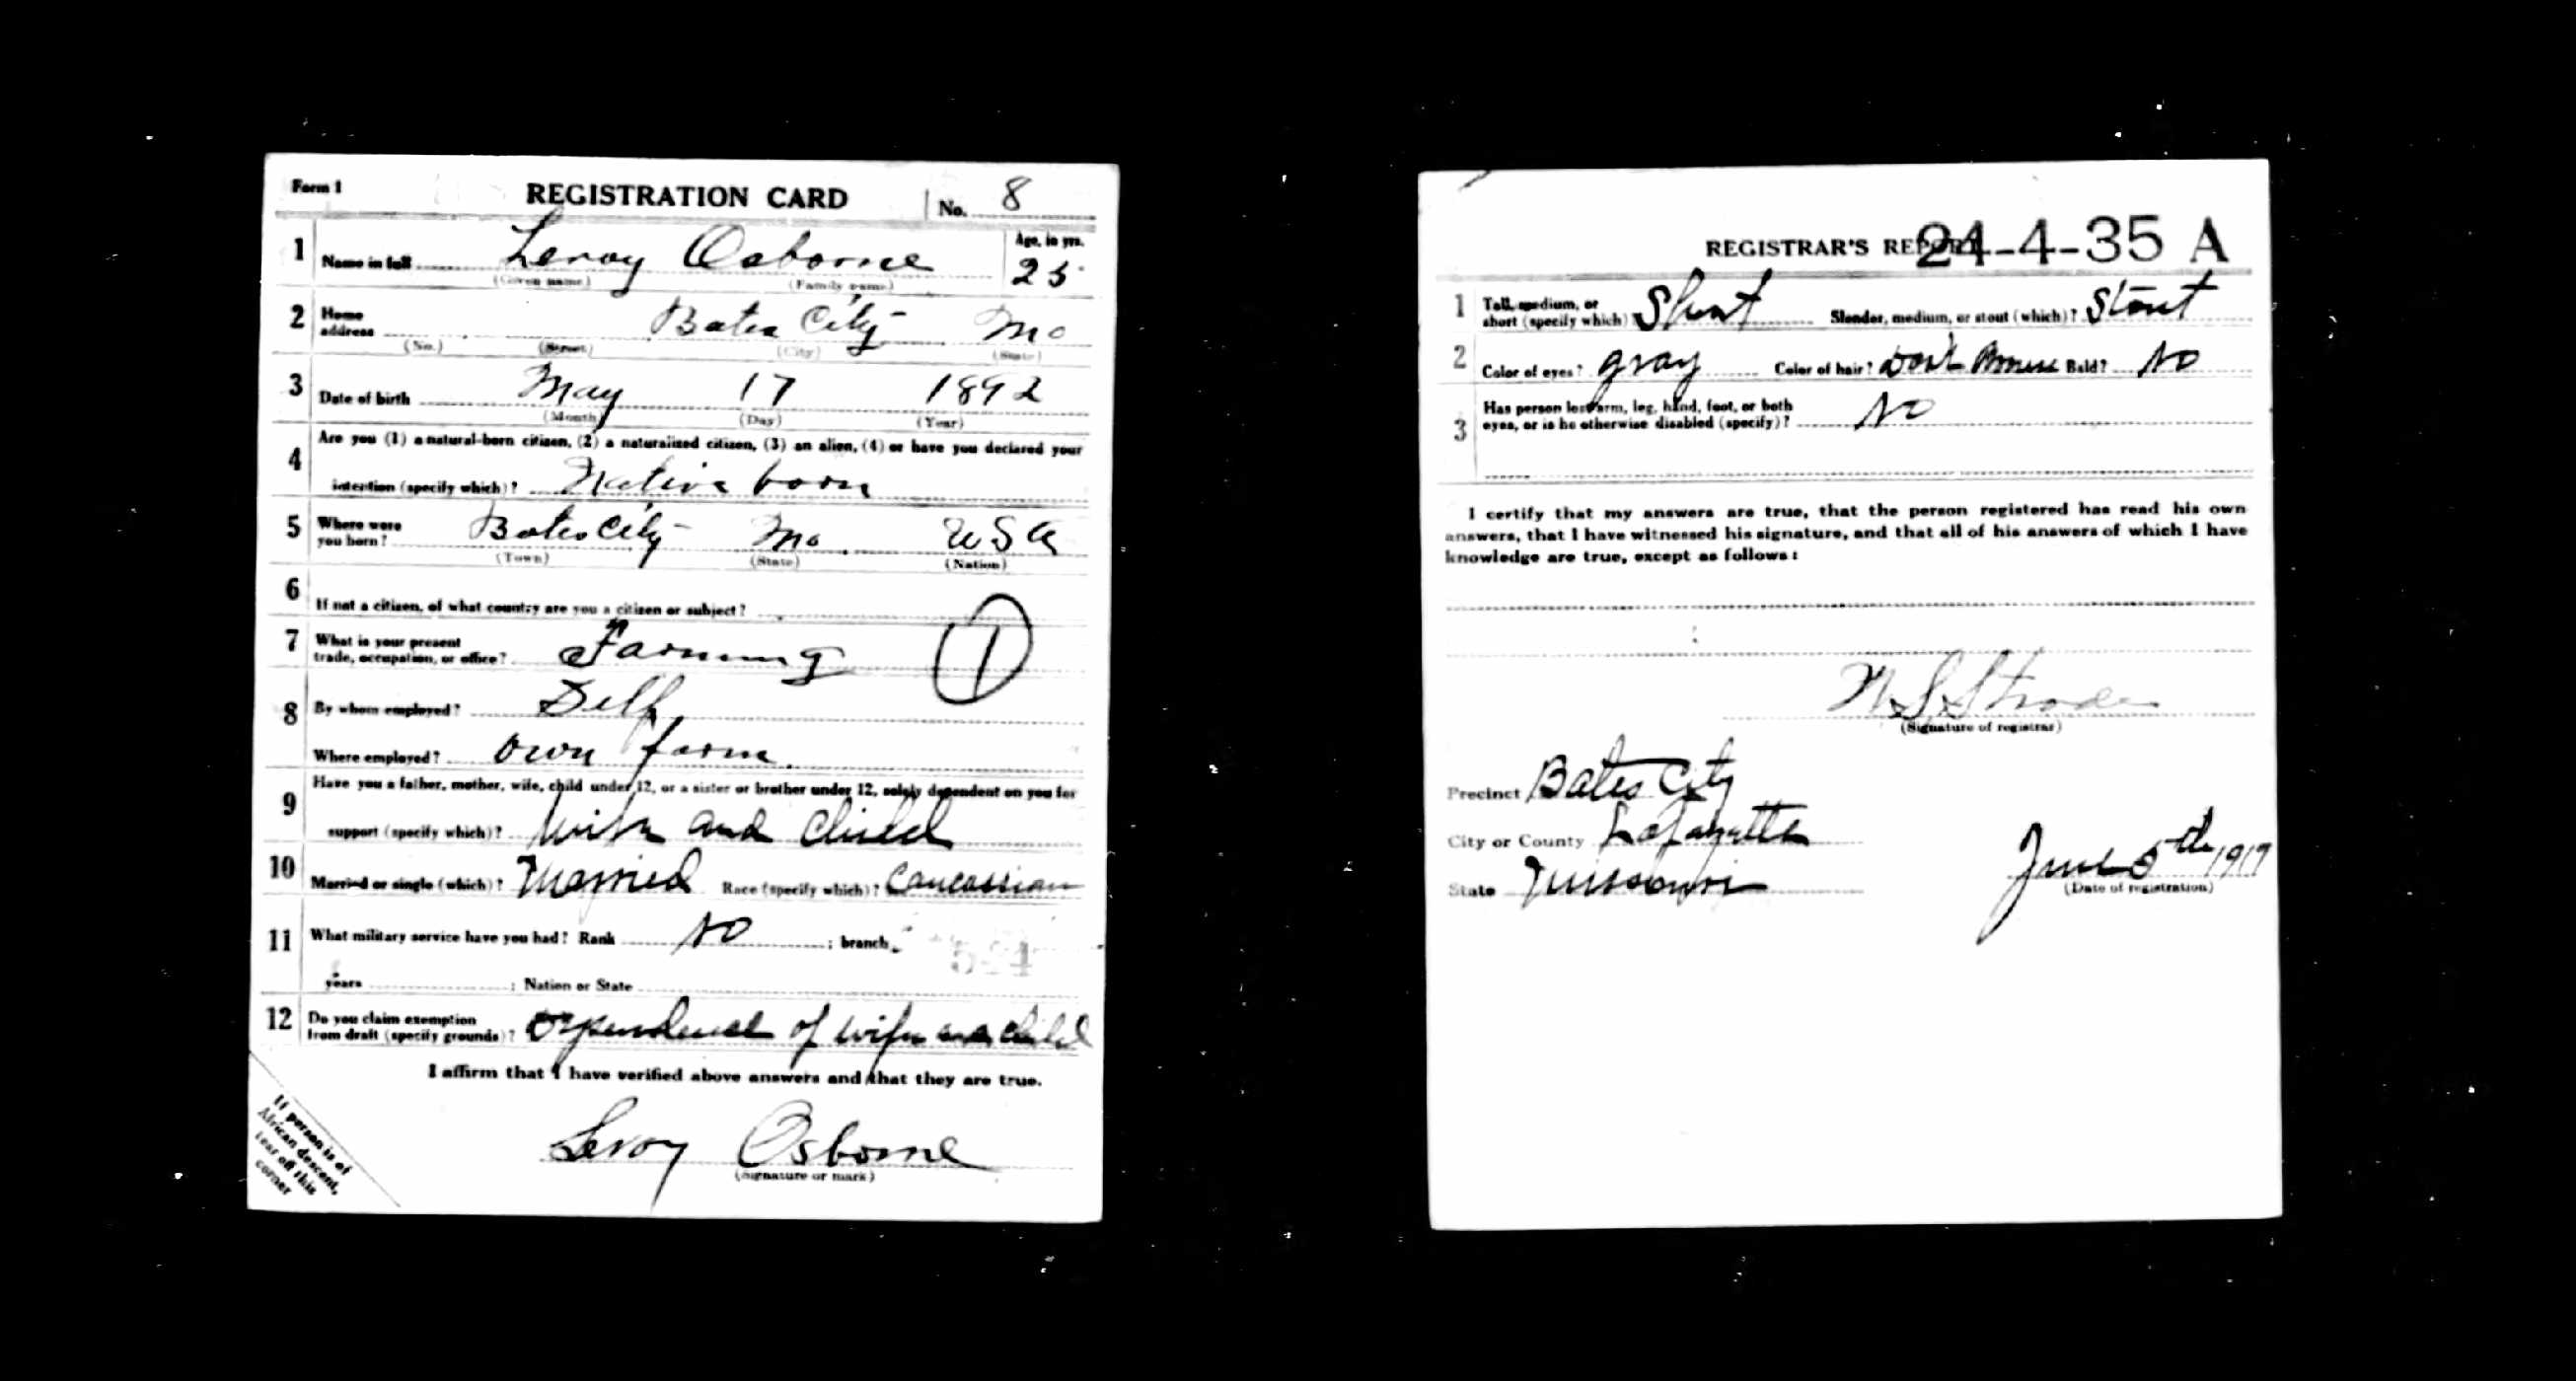 Form 1
REGISTRATION CARD
No. 8
1 Name in full Leroy Osborne
(Given name) (Family name)
Age, in yrs.
25
2 Home address Bates City Mo
(No.) (Street) (City) (State)
3 Date of birth May 17 1892
(Month) (Day) (Year)
4 Are you (1) a natural-born citizen, (2) a naturalized citizen, (3) an alien, (4) or have you declared your
intention (specify which)? Native born
5 Where were you born? Bates City Mo USA
(Town) (State) (Nation)
6 If not a citizen, of what country are you a citizen or subject?
7 What is your present trade, occupation, or office? Farming
1
8 By whom employed? Self
Where employed? own farm.
9 Have you a father, mother, wife, child under 12, or a sister or brother under 12, solely dependent on you for
support (specify which)? Wife and Child
10 Married or single (which)? Married Race (specify which)? Caucassian
11 What military service have you had? Rank NO ; branch
years ; Nation or State
12 Do you claim exemption from draft (specify grounds)? Dependence of wife and child
I affirm that I have verified above answers and that they are true.
Leroy Osborne
(Signature or mark)
If person is of
African descent,
tear off this
corner
REGISTRAR'S REPORT
24-4-35 A
1 Tall, medium, or short (specify which) Short Slender, medium, or stout (which)? Stout
2 Color of eyes? gray Color of hair? Dark Brown Bald? NO
3 Has person lost arm, leg, hand, foot, or both
eyes, or is he otherwise disabled (specify)? NO
I certify that my answers are true, that the person registered has read his own
answers, that I have witnessed his signature, and that all of his answers of which I have
knowledge are true, except as follows:
(Signature of registrar)
Precinct Bates City
City or County Lafayette
State Missouri
June 5th 1917
(Date of registration)